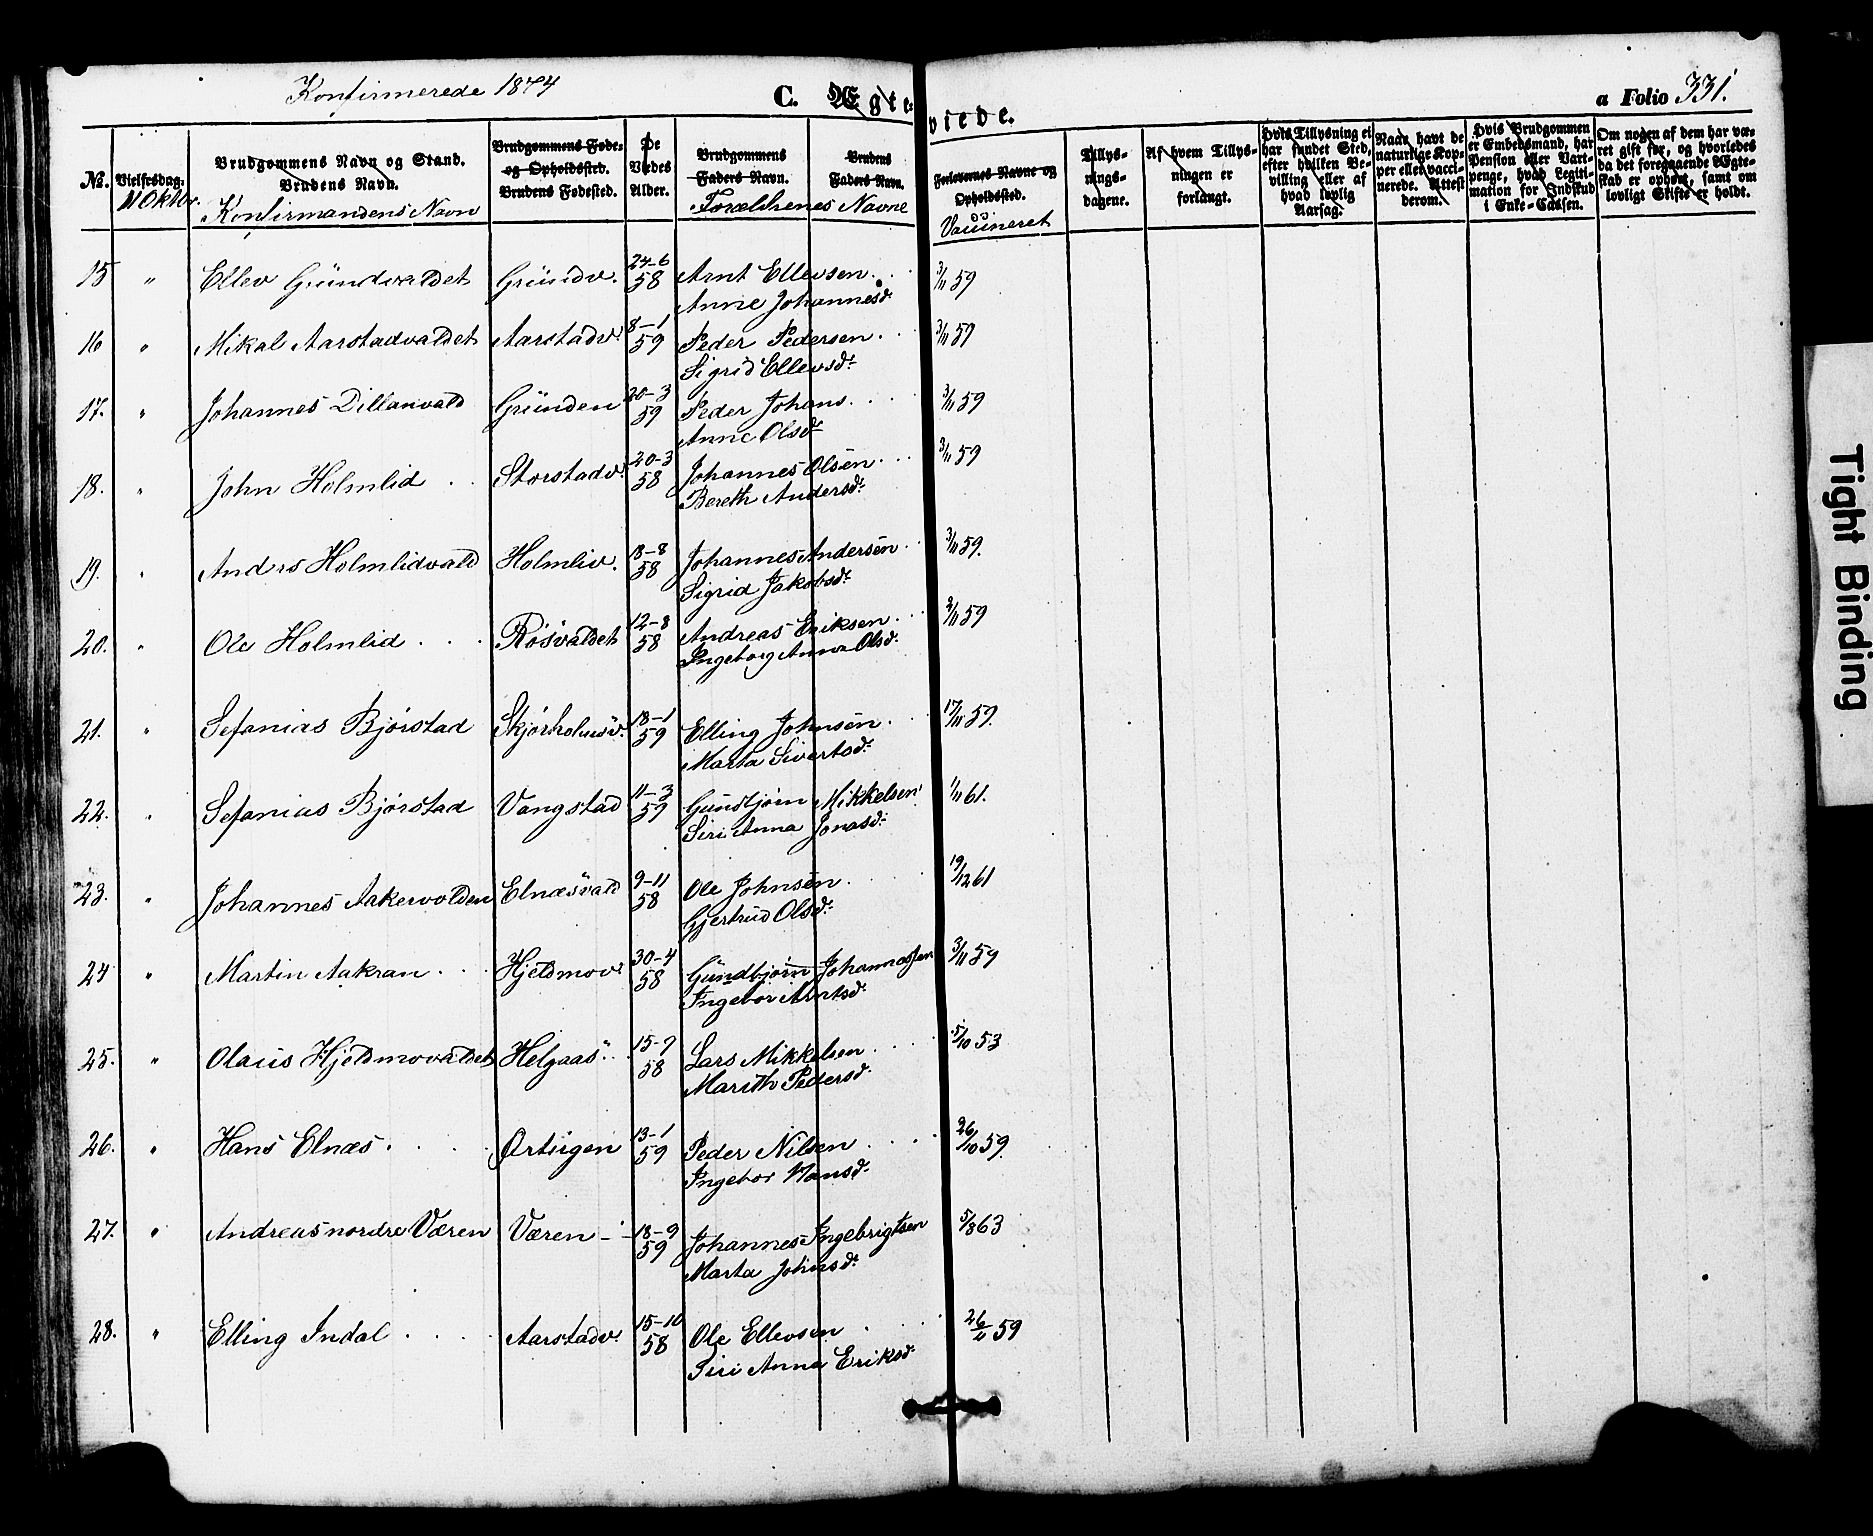 Konfirmerede 1874
C. Ægte-
viede.
a Folio 331.
No.
Vielsesdag.
11 Oktbr.
Brudgommens Navn og Stand.
Brudens Navn.
Konfirmandens Navn
Brudgommens Føde-
og Opholdssted.
Brudens Fødested.
De
Viedes
Alder.
Brudgommens
Faders Navn.
Brudens
Faders Navn.
Forældrenes Navne
Forlovernes Navne og
Opholdssted.
Vaccineret
Tillys-
nings-
dagene.
Af hvem Tillys-
ningen er
forlangt.
Hvis Tillysning ei
har fundet Sted,
efter hvilken Be-
villing eller af
hvad lovlig
Aarsag.
Naar havt de
naturlige Kop-
per eller vacci-
nerede. Attest
derom.
Hvis Brudgommen
er Embedsmand, har
Pension eller Vart-
penge, hvad Legiti-
mation for Indskud
i Enke-Cassen.
Om nogen af dem har væ-
ret gift før, og hvorledes
da det foregaaende Ægte-
skab er ophørt, samt om
lovligt Skifte er holdt.
15 " Ellev Gründvaldet Gründv. 24-6 58 Arnt Ellevsen. 3/11 59
Anne Johannesd.
16 " Mikal Aarstadvaldet Aarstadv. 8-1 59 Peder Pedersen. 3/11 59
Sigrid Ellevsd.
17. " Johannes Dillanvald Gründen 20-3 59 Peder Johans. 3/11 59
Anne Olsd
18. " John Holmlid Storstadv. 20-3 58 Johannes Olsen. 3/11 59
Bereth Andersd.
19. " Anders Holmlidvald Holmliv. 18-8 58 Johannes Andersen. 3/11 59.
Sigrid Jakobsd.
20. " Ole Holmlid Rösvaldet 12-8 58 Andreas Eriksen. 3/11 59
Ingeborg Anna Olsd.
21. " Sefanias Bjørstad Skjørholmsv. 18-1 59 Elling Johnsen. 17/11 59.
Marta Sivertsd.
22. " Sefanias Bjørstad Vangstad 11-3 59 Gundbjørn Mikkelsen 1/11 61.
Siri Anna Jonasd.
23. " Johannes Aakervolden Elnæsvald 9-11 58 Ole Johnsen. 19/12 61
Gjertrud Olsd.
24 " Martin Aakran Hjeldmov. 30-4 58 Gundbjørn Johannessen 3/11 59
Ingebor Arntsd.
25. " Olaus Hjeldmovaldet Helgaas 15-9 58 Lars Mikkelsen 5/10 53
Marith Pedersd.
26. " Hans Elnæs. Ørtugen 13-1 59 Peder Nilsen 26/10 59.
Ingebor Hansd.
27. " Andreas nordre Væren Væren 18-9 59 Johannes Ingebrigtsen 5/8 63
Marta Johnsd.
28. " Elling Indal Aarstadv. 15-10 58 Ole Ellevsen 26/11 59
Siri Anna Eriksd.
Tight Binding